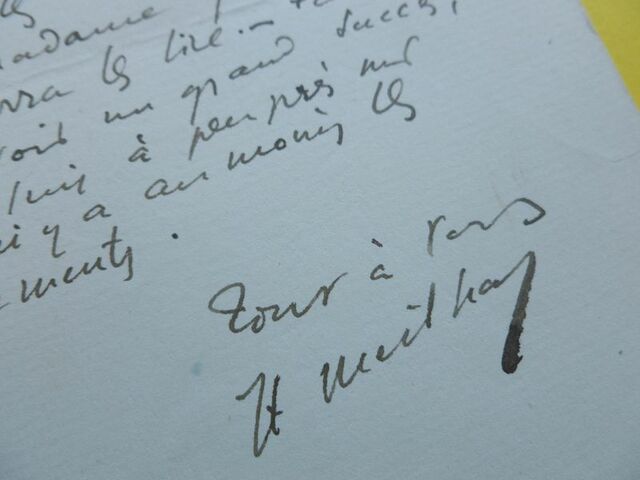 madame
les lire. —
un grand succès,
suis à peu près sûr
y a au moins les
ments.
Tout à vous
H Meilhac